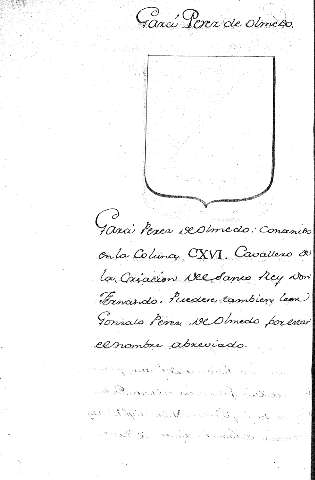 Garci Perez de Olmedo.
Garci Perez de Olmedo: Contando
en la Coluna CXVI. Cavallero de
la Criacion del Santo Rey Don
Fernando. Puedese tambien leer
Gonzalo Perez de Olmedo por estar
el nombre abreviado.